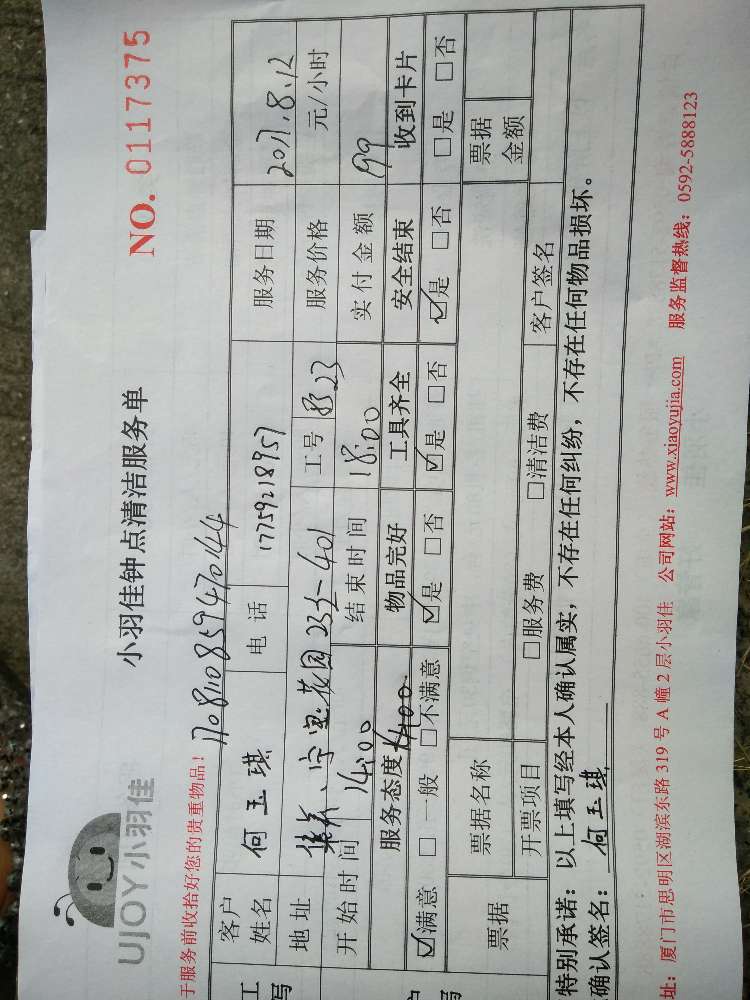 UJOY小羽佳
小羽佳钟点清洁服务单
NO. 0117375
于服务前收拾好您的贵重物品!
170811085947044
客户姓名 何玉琪 电话 17759218957 服务日期 2017.8.12
地址 集美、宁宝花园23#-401 工号 8523 服务价格 元/小时
开始时间 14:00 结束时间 18:00 实付金额 199
服务态度 物品完好 工具齐全 安全结束 收到卡片
☑满意 □一般 □不满意 ☑是 □否 ☑是 □否 ☑是 □否 □是 □否
票据 票据名称 票据金额
开票项目 □服务费 □清洁费 客户签名
特别承诺:以上填写经本人确认属实,不存在任何纠纷,不存在任何物品损坏。
确认签名:何玉琪
址:厦门市思明区湖滨东路 319 号 A 幢 2 层小羽佳 公司网站:www.xiaoyujia.com 服务监督热线:0592-5888123